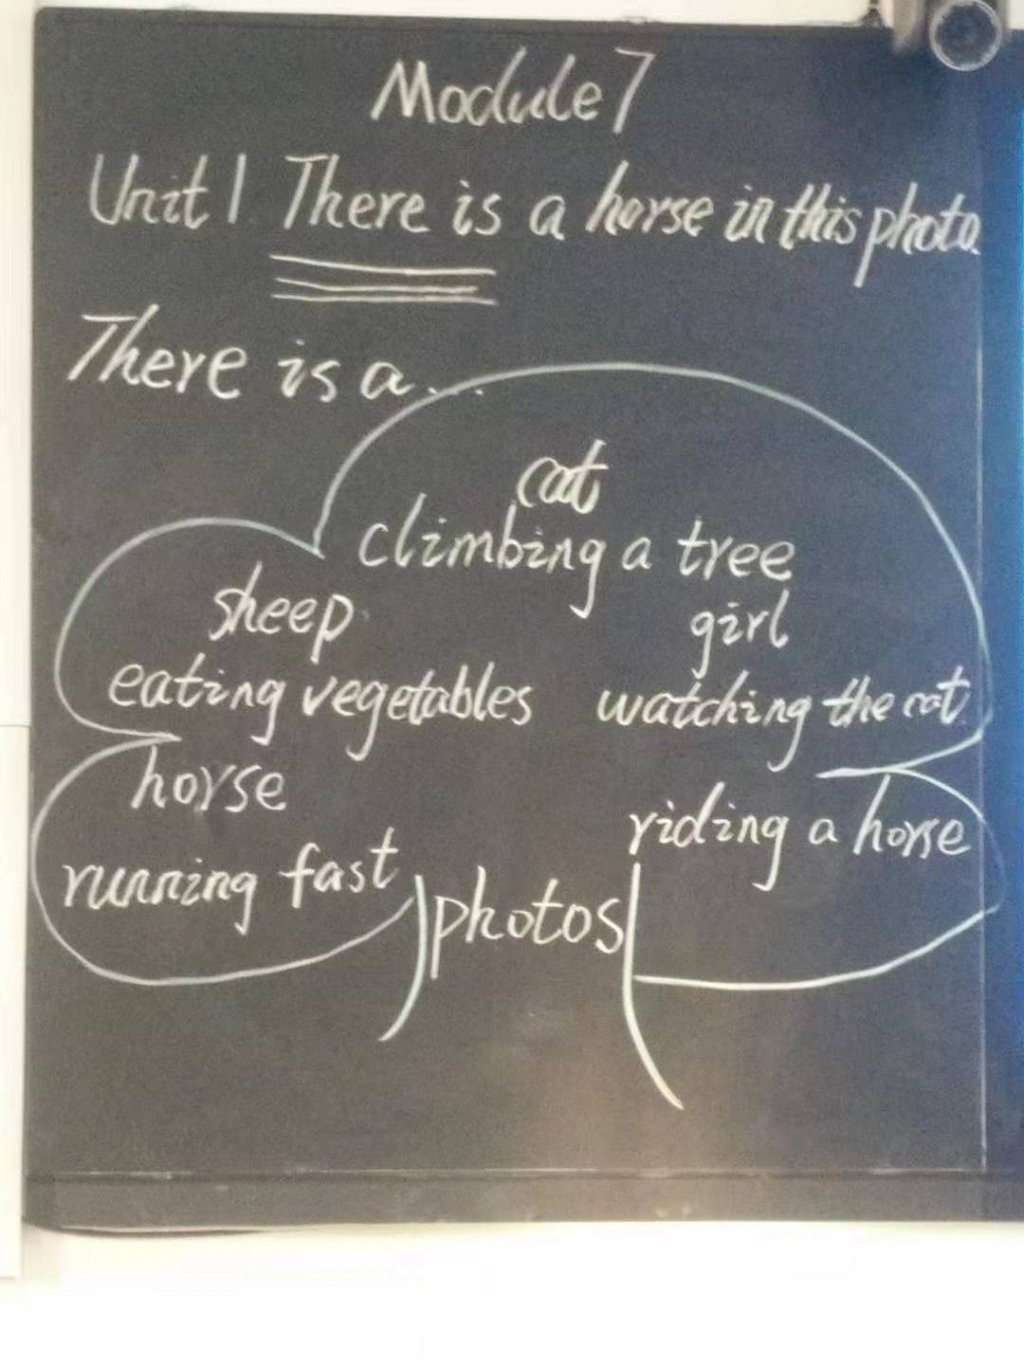 Module 7
Unit 1 There is a horse in this photo.
There is a...
cat
climbing a tree
sheep
girl
eating vegetables
watching the cat
horse
riding a horse
running fast
photos